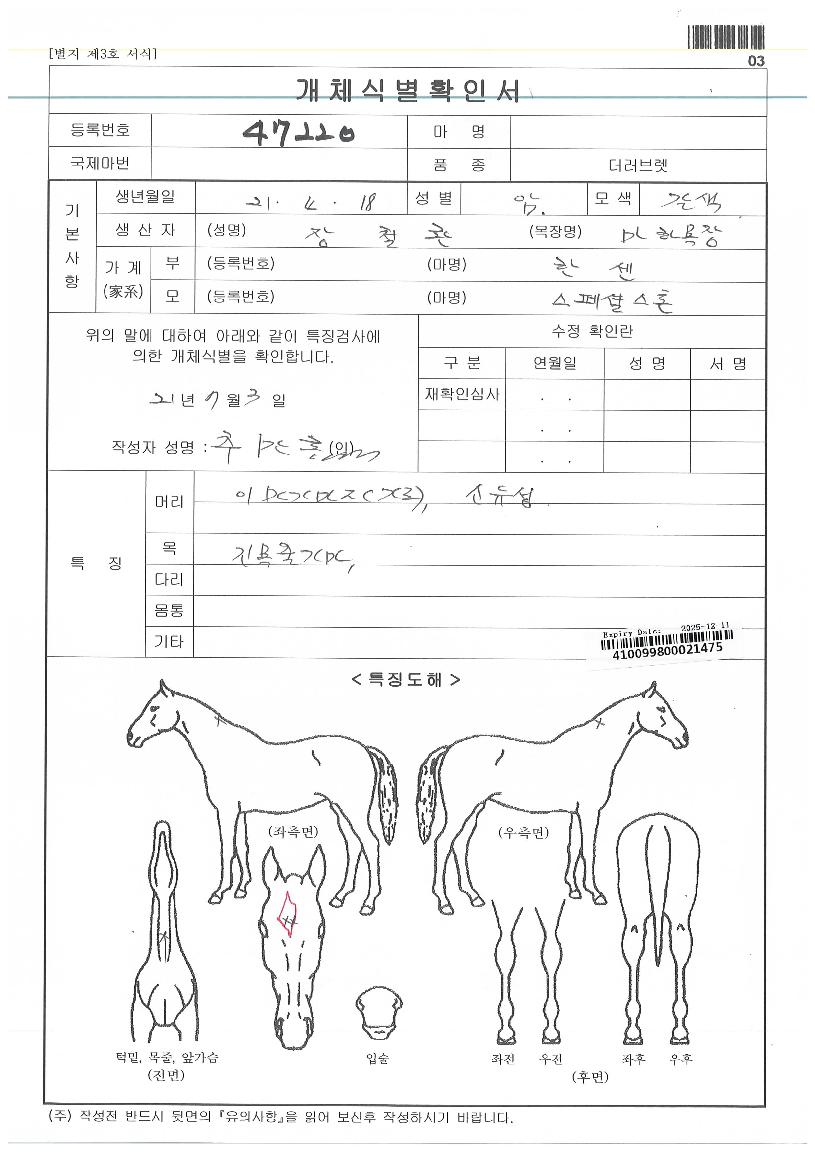 [별지 제3호 서식]
03
개체식별확인서
등록번호 47220 마 명
국제마번 품 종 더러브렛
기본사항
생년월일 21. 4. 18 성 별 암. 모 색 갈색
생 산 자 (성명) 장 철 훈 (목장명)
가 계 (家系) 부 (등록번호) (마명) 한 센
모 (등록번호) (마명) 스페셜스톤
위의 말에 대하여 아래와 같이 특징검사에
의한 개체식별을 확인합니다.
21년 7월 3일
작성자 성명 : (인)
수정 확인란
구 분 연월일 성 명 서 명
재확인심사 . .
. .
. .
특 징
머리
목
다리
몸통
기타
Expiry Date: 2025-12-11
410099800021475
< 특징도해 >
(좌측면) (우측면)
턱밑, 목줄, 앞가슴 입술 좌전 우전 좌후 우후
(전면) (후면)
(주) 작성전 반드시 뒷면의 『유의사항』을 읽어 보신후 작성하시기 바랍니다.